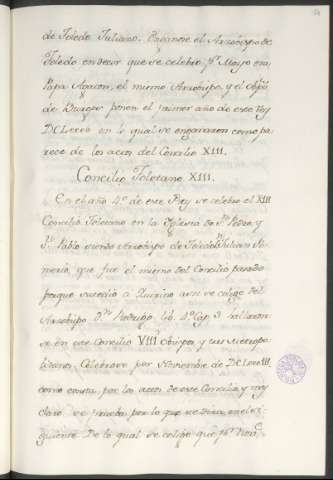 de Toledo Juliano. Engañose el Arzobispo de
Toledo en decir que se celebro pr. Mayo era
Papa Agaton, el mismo Arzobispo, y el Obpo.
de Burgos ponen el primer año de este Rey
en lo qual se engañaron como pa
rece de los actos del Concilio XIII.
Concilio Toletano XIII.
En el año 4º de este Rey se celebro el XIII
Concilio Toletano en la Iglesia de Sn. Pedro y
Sn. Pablo siendo Arzobispo de Toledo Sn. Julian
que fue el mismo del Concilio pasado
porque sucedio a Quirico asi se colige del
Arzobispo Dn. Rodrigo lib. 4º Cap. 3 hallaron
se en este Concilio VIII Obispos y sus Metropo
litanos. Celebrose por Noviembre de
como consta por los actos de este Concilio, y muy
claro se prueba por lo que se dira en el si
guiente. De lo qual se colige que pr.